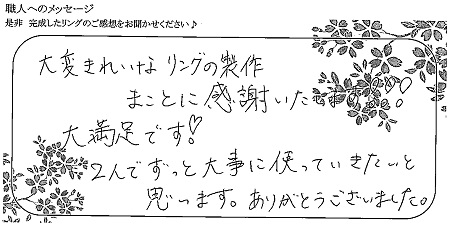 職人へのメッセージ
是非 完成したリングのご感想をお聞かせください♪
大変きれいな リングの製作
まことに感謝いたします♡♡
大満足です!♡
2人でずっと大事に使っていきたいと
思います。ありがとうございました。